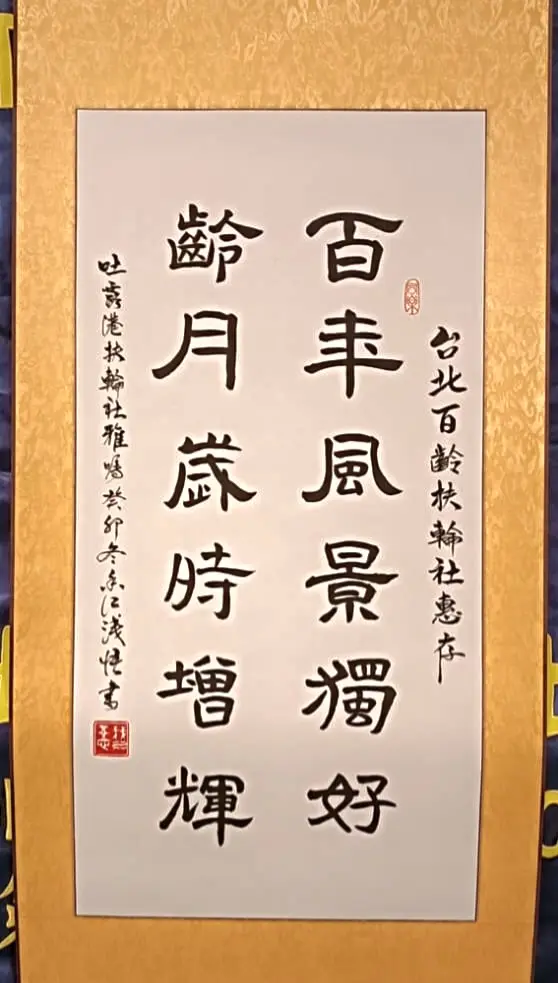 台北百齡扶輪社惠存
百年風景獨好
齡月歲時增輝
吐露港扶輪社雅囑癸卯冬香江淺悟書